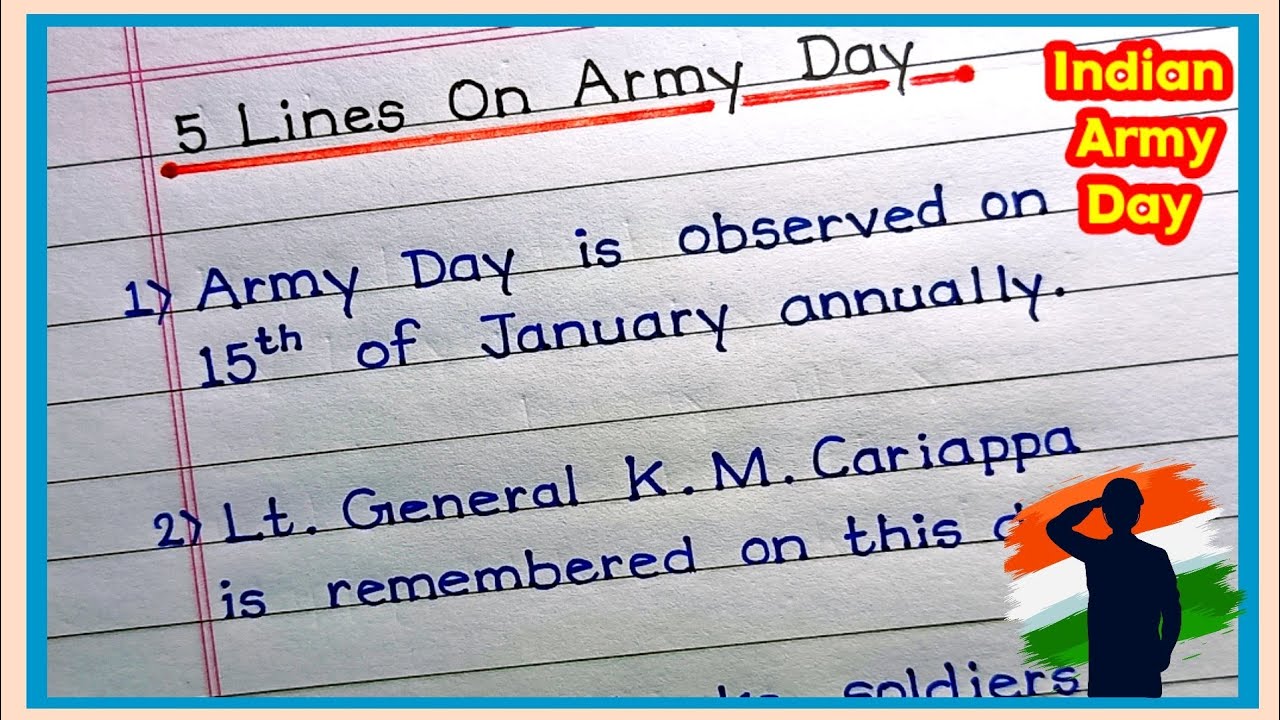 5 Lines On Army Day
Indian
Army
Day
1) Army Day is observed on
15th of January annually.
2) Lt. General K. M. Cariappa
is remembered on this
soldiers